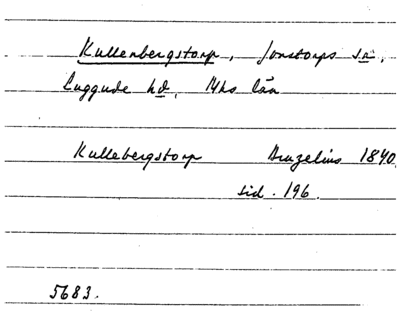 Kullenbergstorp, Jonstorps sn,
Luggude hd, Mhs län
Kullebergstorp Bruzelius 1840
sid. 196.
5683.